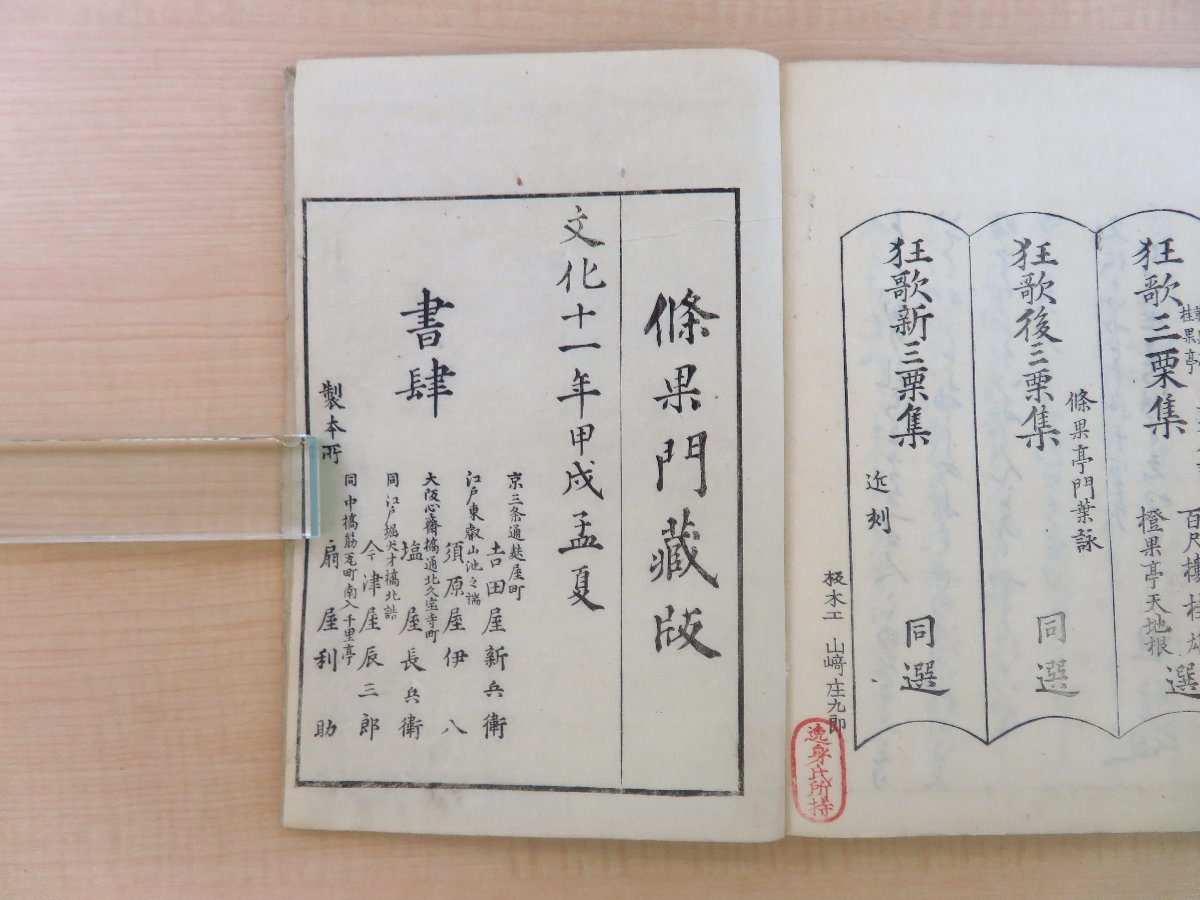 狂歌三栗集
桂果亭
百尺樓桂雄
橙果亭天地根
選
狂歌後三栗集
條果亭門葉詠
同選
狂歌新三栗集
近刻
同選
板木工 山﨑庄九郎
速身氏所持
條果門藏版
文化十一年甲戌孟夏
書肆
京三条通麸屋町
吉田屋新兵衛
江戸東叡山池之端
須原屋伊八
大阪心齋橋通北久宝寺町
塩屋長兵衛
同江戸堀犬才橋北詰
今津屋辰三郎
製本所
同中橋筋瓦町南入千里亭
扇屋利助